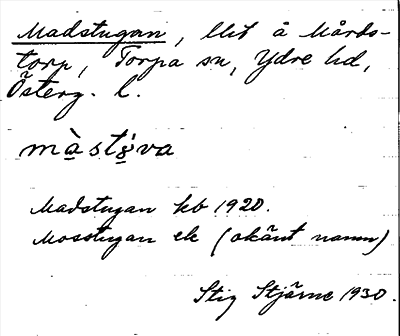 Madstugan, llit å Mårds-
torp, Torpa sn, Ydre hd,
Österg. l.
mà̤stö̀va
Madstugan kb 1920.
Mosstugan ek (okänt namn)
Stig Stjärne 1930.